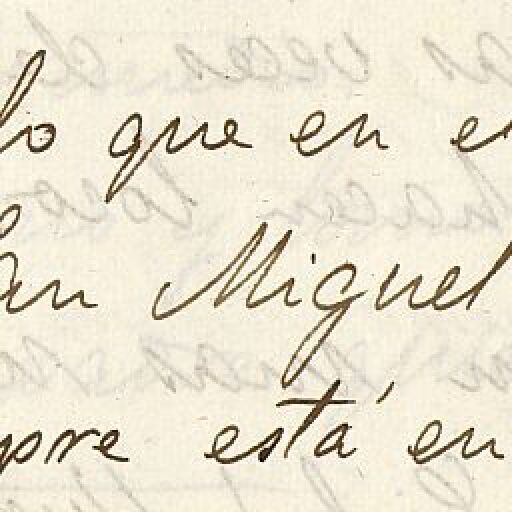 lo que en e
San Miguel
pre está en